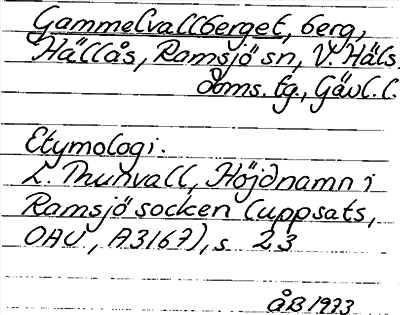 Gammelvallberget, berg,
Hällås, Ramsjö sn, V. Häls.
doms. tg., Gävl. l.
Etymologi.
L. Thunvall, Höjdnamn i
Ramsjö socken (uppsats,
OAU, A3167), s. 23
ÅB 1973